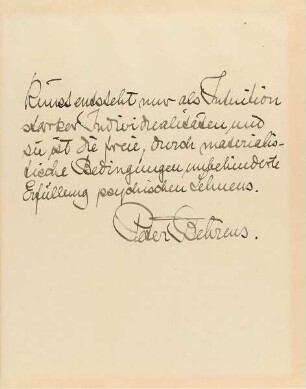 Kunst entsteht nur als Intuition
starker Individualitäten und
sie ist die freie, durch materialis-
tische Bedingungen unbehinderte
Erfüllung psychischen Sehnens.
Peter Behrens.